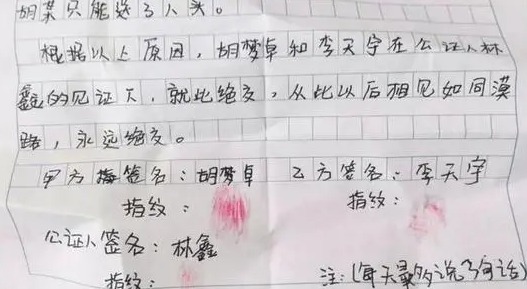 胡某只能送3人头。
根据以上原因，胡梦卓和李天宇在公证人林
鑫的见证下，就此绝交，从此以后相见如同漠
路，永远绝交。
甲方签名：胡梦卓 乙方签名：李天宇
指纹： 指纹：
公证人签名：林鑫
指纹： 注：(每天最多说3句话)